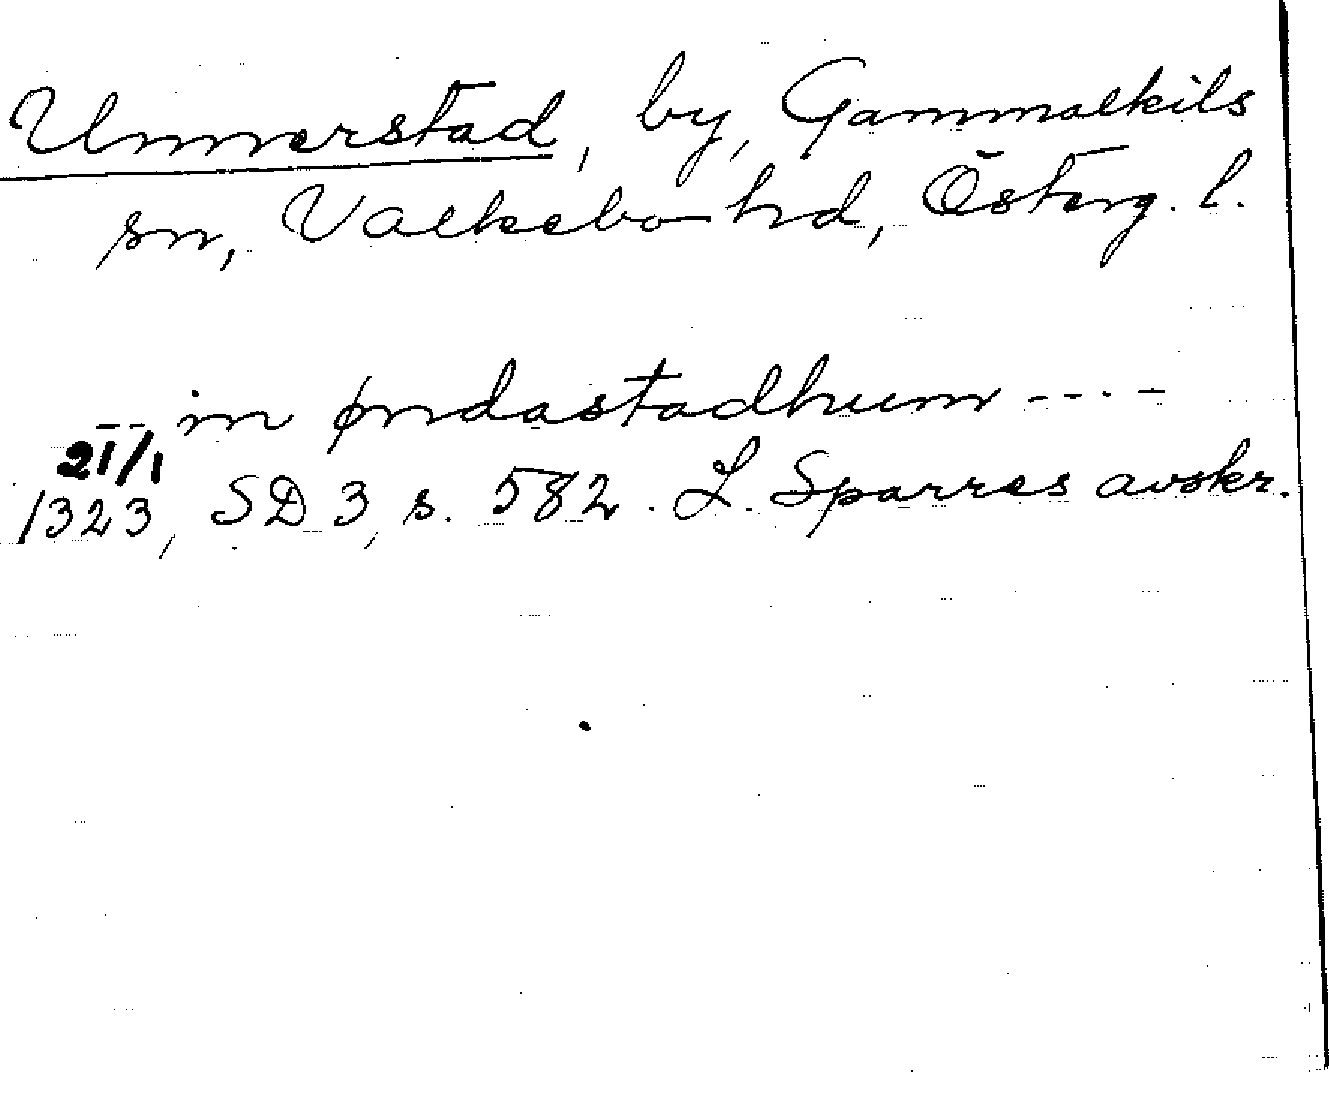 Unnerstad, by, Gammalkils
sn, Valkebo hd, Österg. l.
-- in øndastadhum ----
21/1
1323, SD 3, s. 582. L. Sparres avskr.